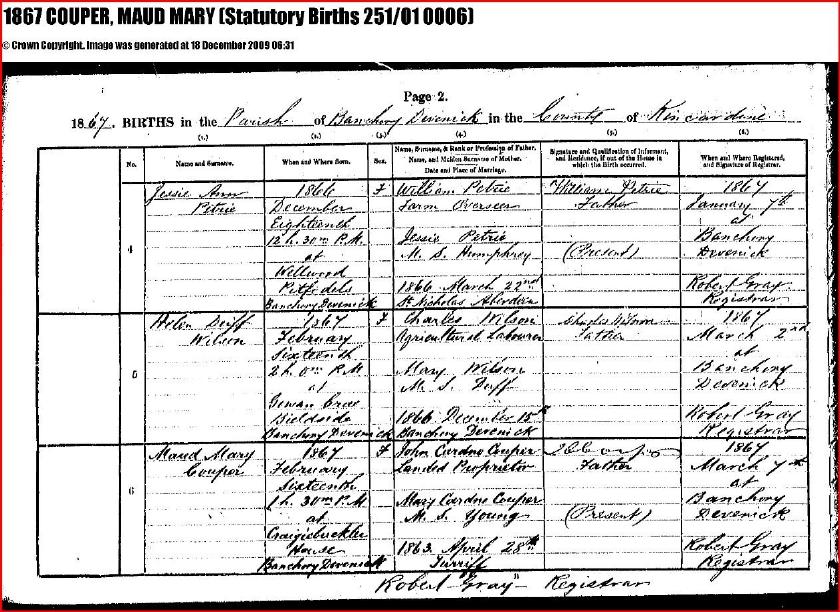 1867 COUPER, MAUD MARY (Statutory Births 251/01 0006)
© Crown Copyright. Image was generated at 18 December 2009 06:31
Page 2.
1867. BIRTHS in the Parish of Banchory Devenick in the County of Kincardine
(1.) (2.) (3.) (4.) (5.) (6.)
No.
Name and Surname.
When and Where Born.
Sex.
Name, Surname, & Rank or Profession of Father.
Name, and Maiden Surname of Mother.
Date and Place of Marriage.
Signature and Qualification of Informant,
and Residence, if out of the House in
which the Birth occurred.
When and Where Registered,
and Signature of Registrar.
4
Jessie Ann
Petrie
1866
December
Eighteenth
12 h. 30m P.M.
at
Wellwood
Pitfodels
Banchory Devenick
F
William Petrie
Farm Overseer
Jessie Petrie
M. S. Humphrey
1866 March 22nd
St. Nicholas Aberdeen
William Petrie
Father
(Present)
1867
January 7th
at
Banchory
Devenick
Robert Gray
Registrar
5
Helen Duff
Wilson
1867
February
Sixteenth
2 h. 0m P.M.
at
Bieldside
Banchory Devenick
F
Charles Wilson
Agricultural Labourer
Mary Wilson
M. S. Duff
1866 December 15th
Banchory Devenick
Charles Wilson
Father
1867
March 2nd
at
Banchory
Devenick
Robert Gray
Registrar
6
Maud Mary
Couper
1867
February
Sixteenth
1 h. 30m P.M.
at
Craigiebuckler
House
Banchory Devenick
F
John Cardno Couper
Landed Proprietor
Mary Cardno Couper
M. S. Young
1863. April 28th
Turriff
Couper
Father
(Present)
1867
March 7th
at
Banchory
Devenick
Robert Gray
Registrar
Robert Gray Registrar